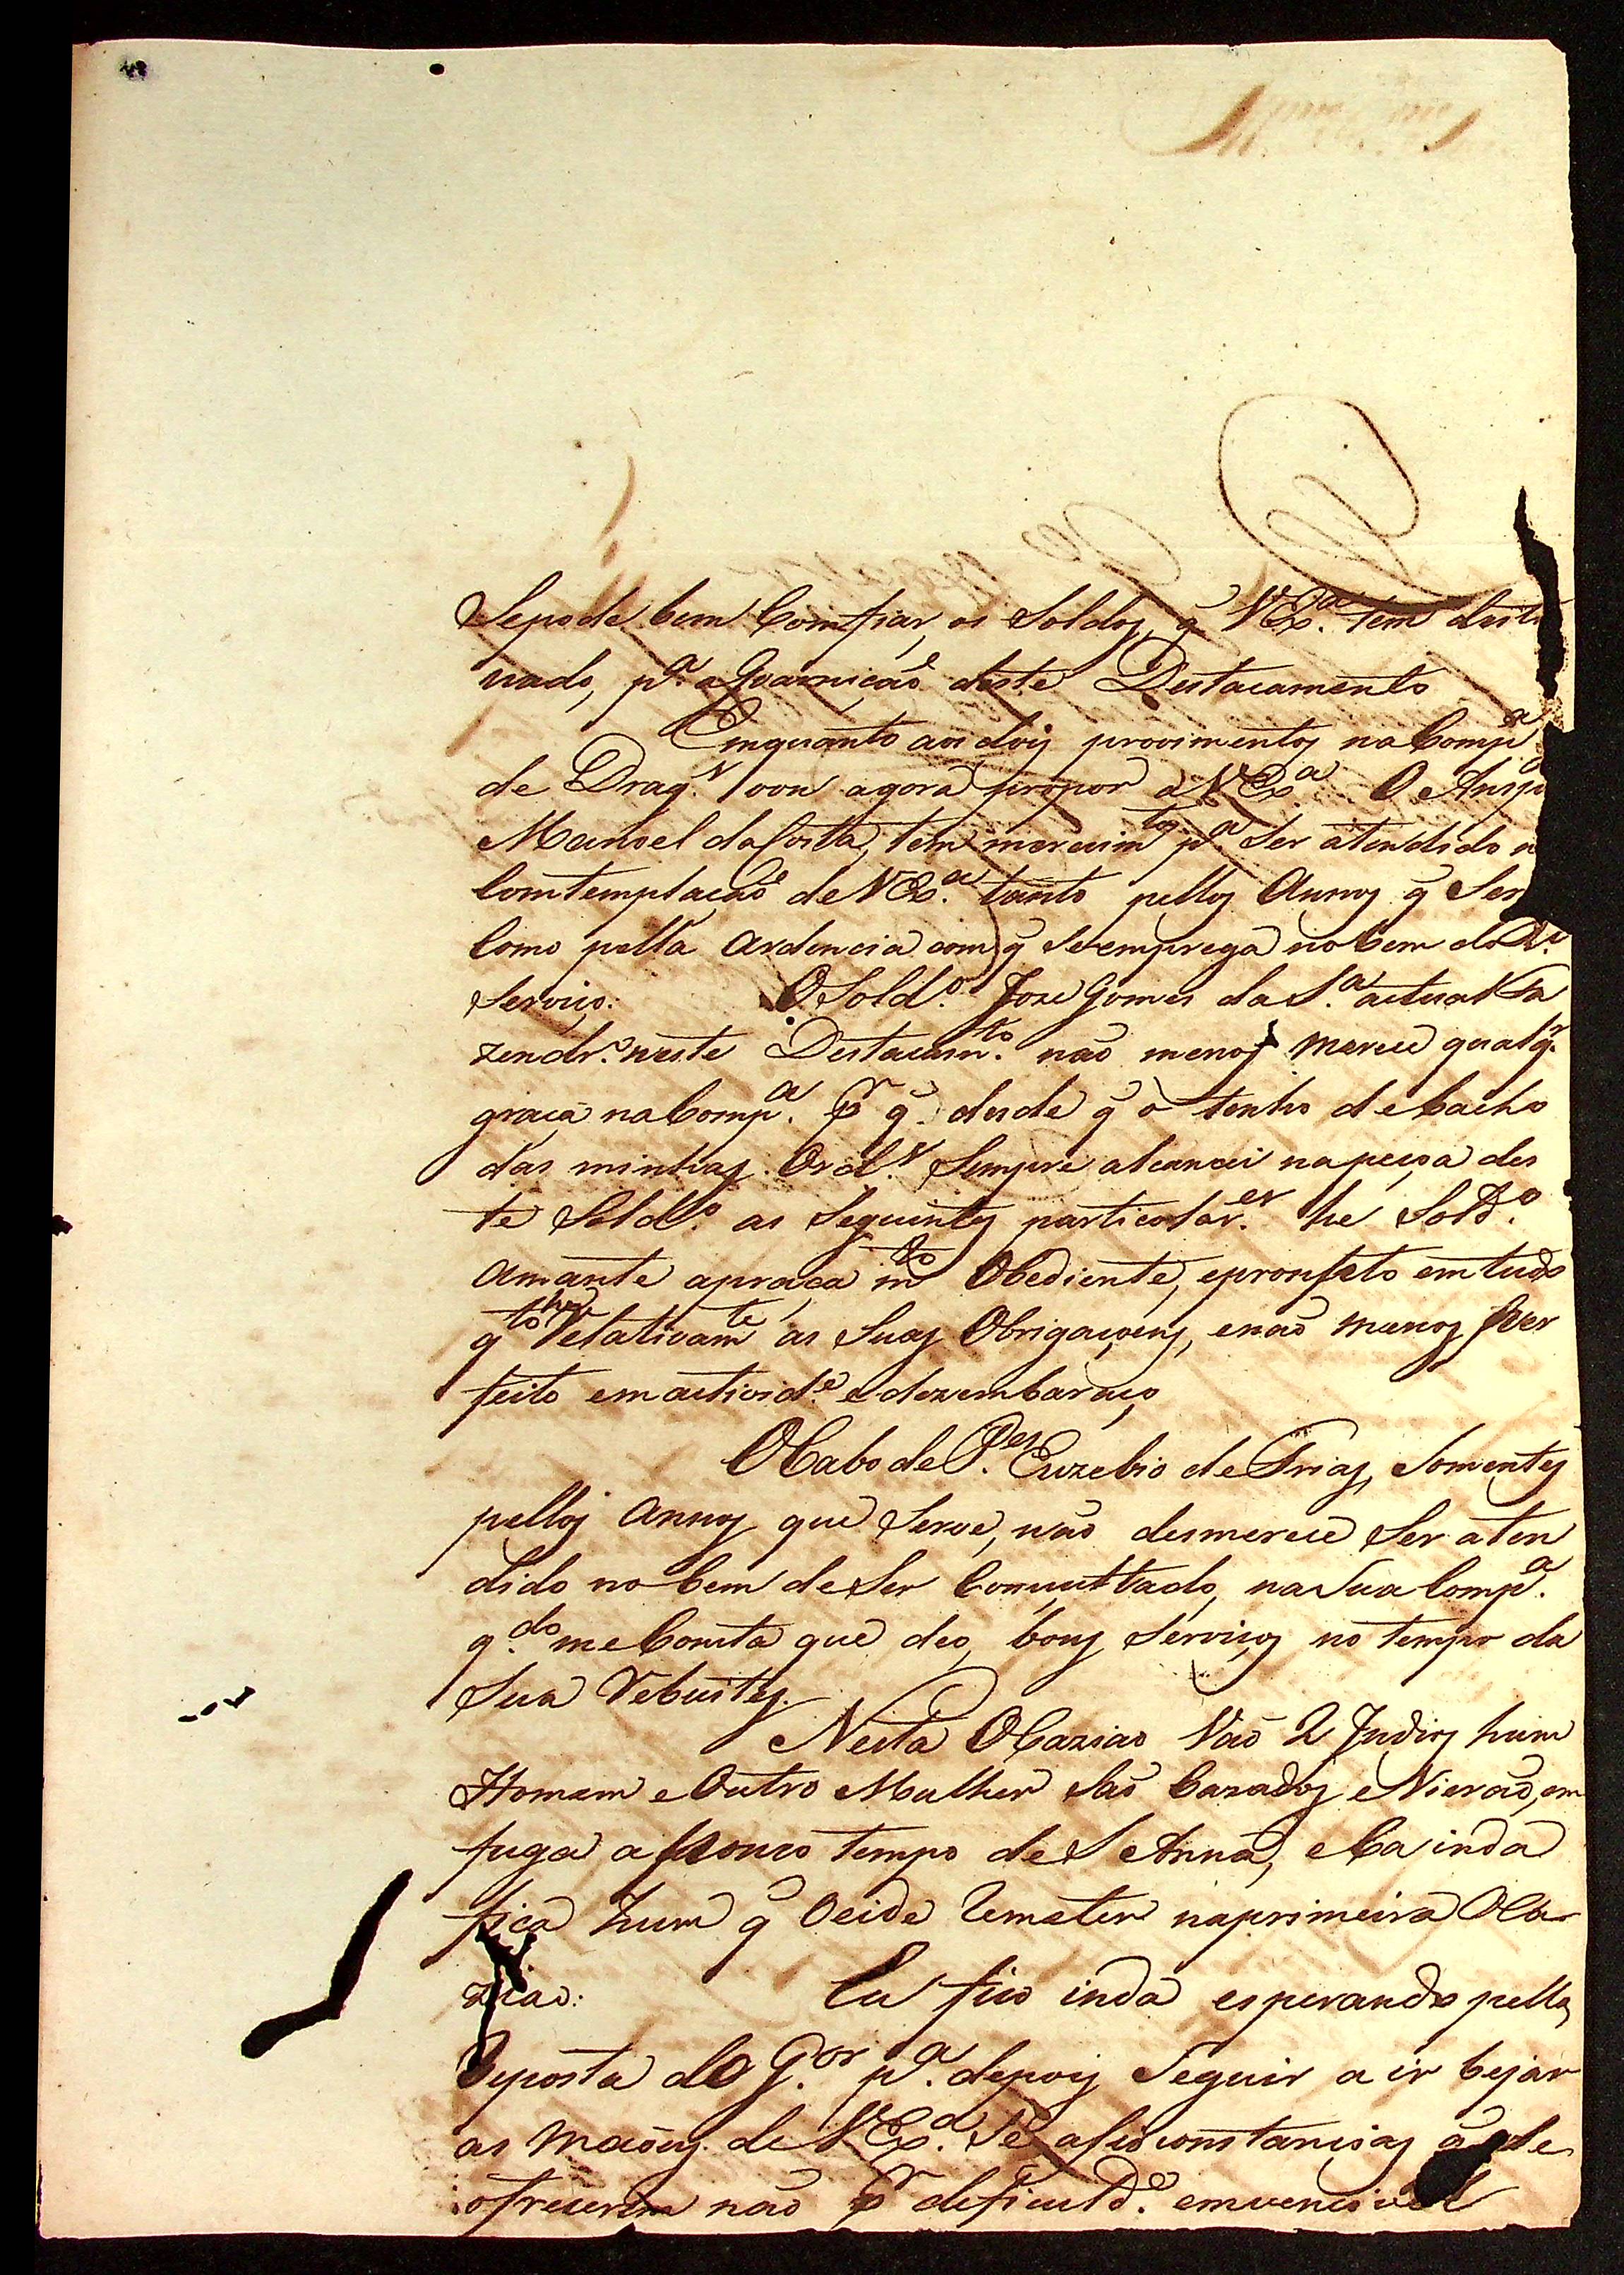 Sepode bem Comfiar os Soldos, q̃ VEx.ª tem desti
nado, p.ª aGoarniçaõ deste Destacamento
Emquanto aos dois provimentos naComp.ª
de Drag.s vou agora propor a VEx.ª O Ansp
Manoel da Costa, tem merecim.tos p.ª Ser atendido n
Comtemplacaõ de VEx.ª tanto pellos Annos q̃ Ser
Como pella ardencia com q̃ Seemprega nobem do R.l
Serviço: OSold.º Joze Gomes da S.ª actual Fa
zendr.º neste Destacam.to naõ menos Merece qualq.r
graça naComp.ª p.r q̃ desde q̃ o tenho debacho
das minhas Ord.s Sempre alcancei napeçoa des
te Sold.º as Seguintes particolar.es he Sold.º
Amante apraça m.to Obediente, epronpto emtudo
q.to he Relativam.te as Suas Obrigaçoens, enaõ menos Per
feito emactivid.e edezembaraço
OCabo de P.es Euzebio de Frias, Somentes
pellos Annos que Serve, naõ desmerece Ser aten
dido no bem deSer Conçultado, naSua Comp.ª
q.do meConsta que deo, bons Serviços no tempo da
Sua Rebustes.
Nesta OCaziaõ Vaõ 2 Indios hum
Homem eOutro Mulher Saõ Cazados eVieraõ, em
fuga a pouco tempo de S Anna, eCa inda
fica hum q̃ Oeide Remeter naprimeira OCa
ziaõ: Eu fico inda esperando pella
Reposta do G.or p.ª depois Seguir a ir bejar
as Maõens de VEx.ª Se asCironstancias q̃ Se
ofrecerem naõ p.r deficuld.e emvencivel